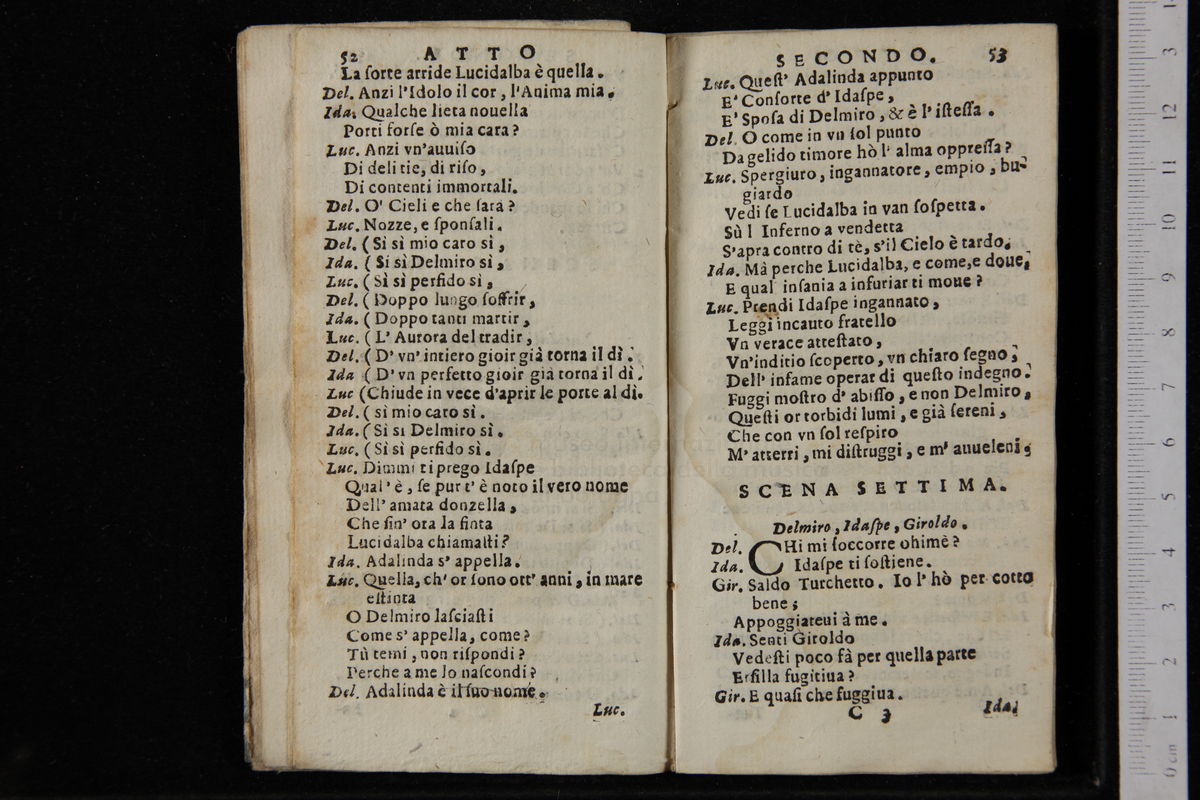 52 ATTO
La ſorte arride Lucidalba è quella.
Del. Anzi l'Idolo il cor, l'Anima mia.
Ida. Qualche lieta nouella
Porti forſe ò mia cara?
Luc. Anzi vn'auuiſo
Di delitie, di riſo,
Di contenti immortali.
Del. O' Cieli e che ſarà?
Luc. Nozze, e ſponſali.
Del. ( Sì sì mio caro sì,
Ida. ( Sì sì Delmiro sì,
Luc. ( Sì sì perfido sì,
Del. ( Doppo lungo ſoffrir,
Ida. ( Doppo tanti martir,
Luc. ( L' Aurora del tradir,
Del. ( D' vn' intiero gioir già torna il dì.
Ida ( D' vn perfetto gioir già torna il dì.
Luc (Chiude in vece d'aprir le porte al dì.
Del. ( sì mio caro sì.
Ida. ( Sì sì Delmiro sì.
Luc. ( Sì sì perfido sì.
Luc. Dimmi ti prego Idaſpe
Qual' è, ſe pur t' è noto il vero nome
Dell' amata donzella,
Che ſin' ora la finta
Lucidalba chiamaſti?
Ida. Adalinda s' appella.
Luc. Quella, ch' or ſono ott' anni, in mare
eſtinta
O Delmiro laſciaſti
Come s' appella, come?
Tù temi, non riſpondi?
Perche a me lo naſcondi?
Del. Adalinda è il ſuo nome.
Luc.
SECONDO. 53
Luc. Queſt' Adalinda appunto
E' Conſorte d' Idaſpe,
E' Spoſa di Delmiro, & è l' iſteſſa.
Del. O come in vn ſol punto
Da gelido timore hò l' alma oppreſſa?
Luc. Spergiuro, ingannatore, empio, bu-
giardo
Vedi ſe Lucidalba in van ſoſpetta.
Sù l Inferno a vendetta
S'apra contro di tè, s'il Cielo è tardo.
Ida. Mà perche Lucidalba, e come,e doue,
E qual inſania a infuriar ti moue?
Luc. Prendi Idaſpe ingannato,
Leggi incauto fratello
Vn verace atteſtato,
Vn'inditio ſcoperto, vn chiaro ſegno,
Dell' infame operar di queſto indegno.
Fuggi moſtro d' abiſſo, e non Delmiro,
Queſti or torbidi lumi, e già ſereni,
Che con vn ſol reſpiro
M' atterri, mi diſtruggi, e m' auueleni;
SCENA SETTIMA.
Delmiro, Idaſpe, Giroldo.
Del. CHi mi ſoccorre ohimè?
Ida. Idaſpe ti ſoſtiene.
Gir. Saldo Turchetto. Io l' hò per cotto
bene;
Appoggiateui à me.
Ida. Senti Giroldo
Vedeſti poco fà per quella parte
Erſilla fugitiua?
Gir. E quaſi che fuggiua.
C 3 Ida.